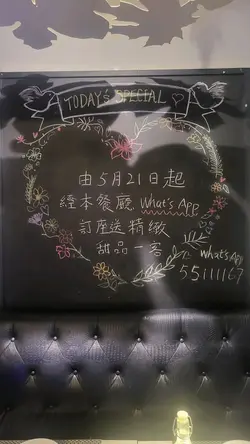 TODAY'S SPECIAL
由5月21日起
經本餐廳 What's App
訂座送精緻
甜品一客
What's App
55111167